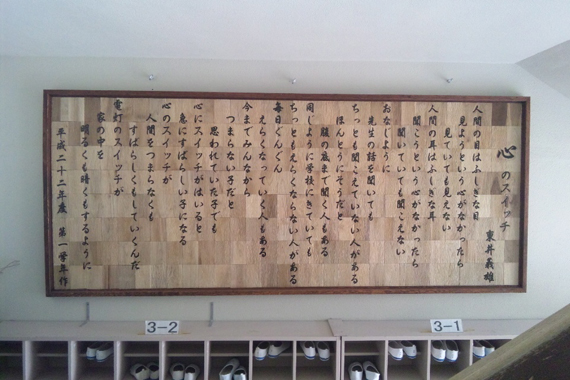 心のスイッチ
東井義雄
人間の目はふしぎな目
見ようという心がなかったら
見ていても見えない
人間の耳はふしぎな耳
聞こうという心がなかったら
聞いていても聞こえない
おなじように
先生の話を聞いても
ちっとも聞こえていない人がある
ほんとうにそうだと
腹の底まで聞く人もある
同じように学校にきていても
ちっともえらくならない人がある
毎日ぐんぐん
えらくなっていく人もある
今までみんなから
つまらない子だと
思われていた子でも
心にスイッチがはいると
急にすばらしい子になる
心のスイッチが
人間をつまらなくも
すばらしくもしていくんだ
電灯のスイッチが
家の中を
明るくも暗くもするように
平成二十二年度 第一学年作
3-2
3-1